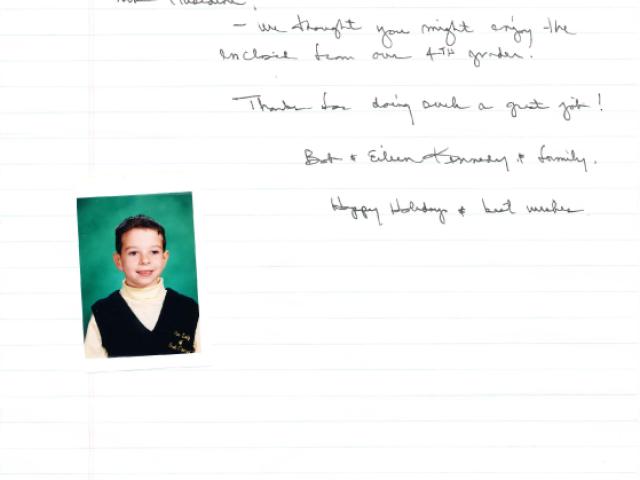 - we thought you might enjoy the
enclosed from our 4TH grader.
Thanks for doing such a great job!
Bob & Eileen Kennedy & family.
Happy Holidays & best wishes